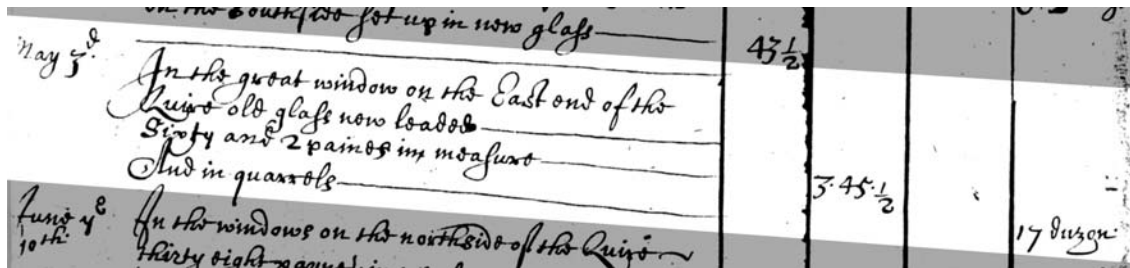 on the Southside set up in new glass 43 1/2
May 3d. In the great window on the East end of the
Quire old glass new leaded
Sixty and 2 paines in measure
And in quarrels 3·45·1/2
June ye In the windows on the northside of the Quire 17 duzon
10th: thirty eight